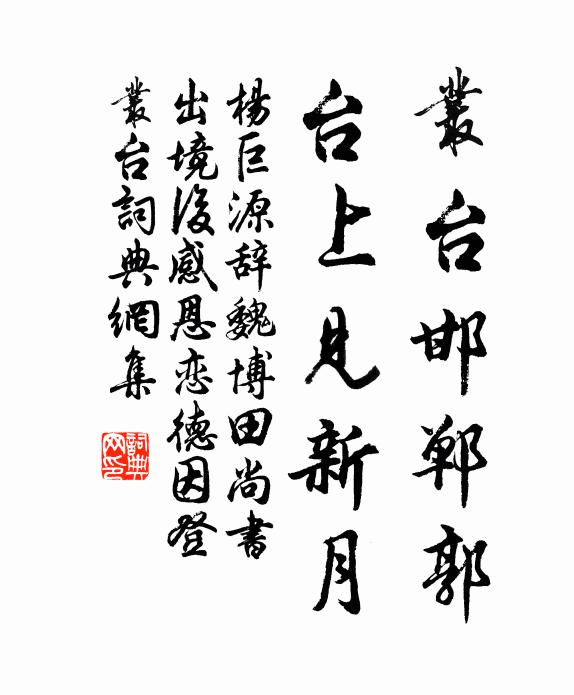 叢台邯郸郭
台上見新月
楊巨源辞魏博田尚書
出境後感恩恋德因登
叢台詞典網集
詞典网印